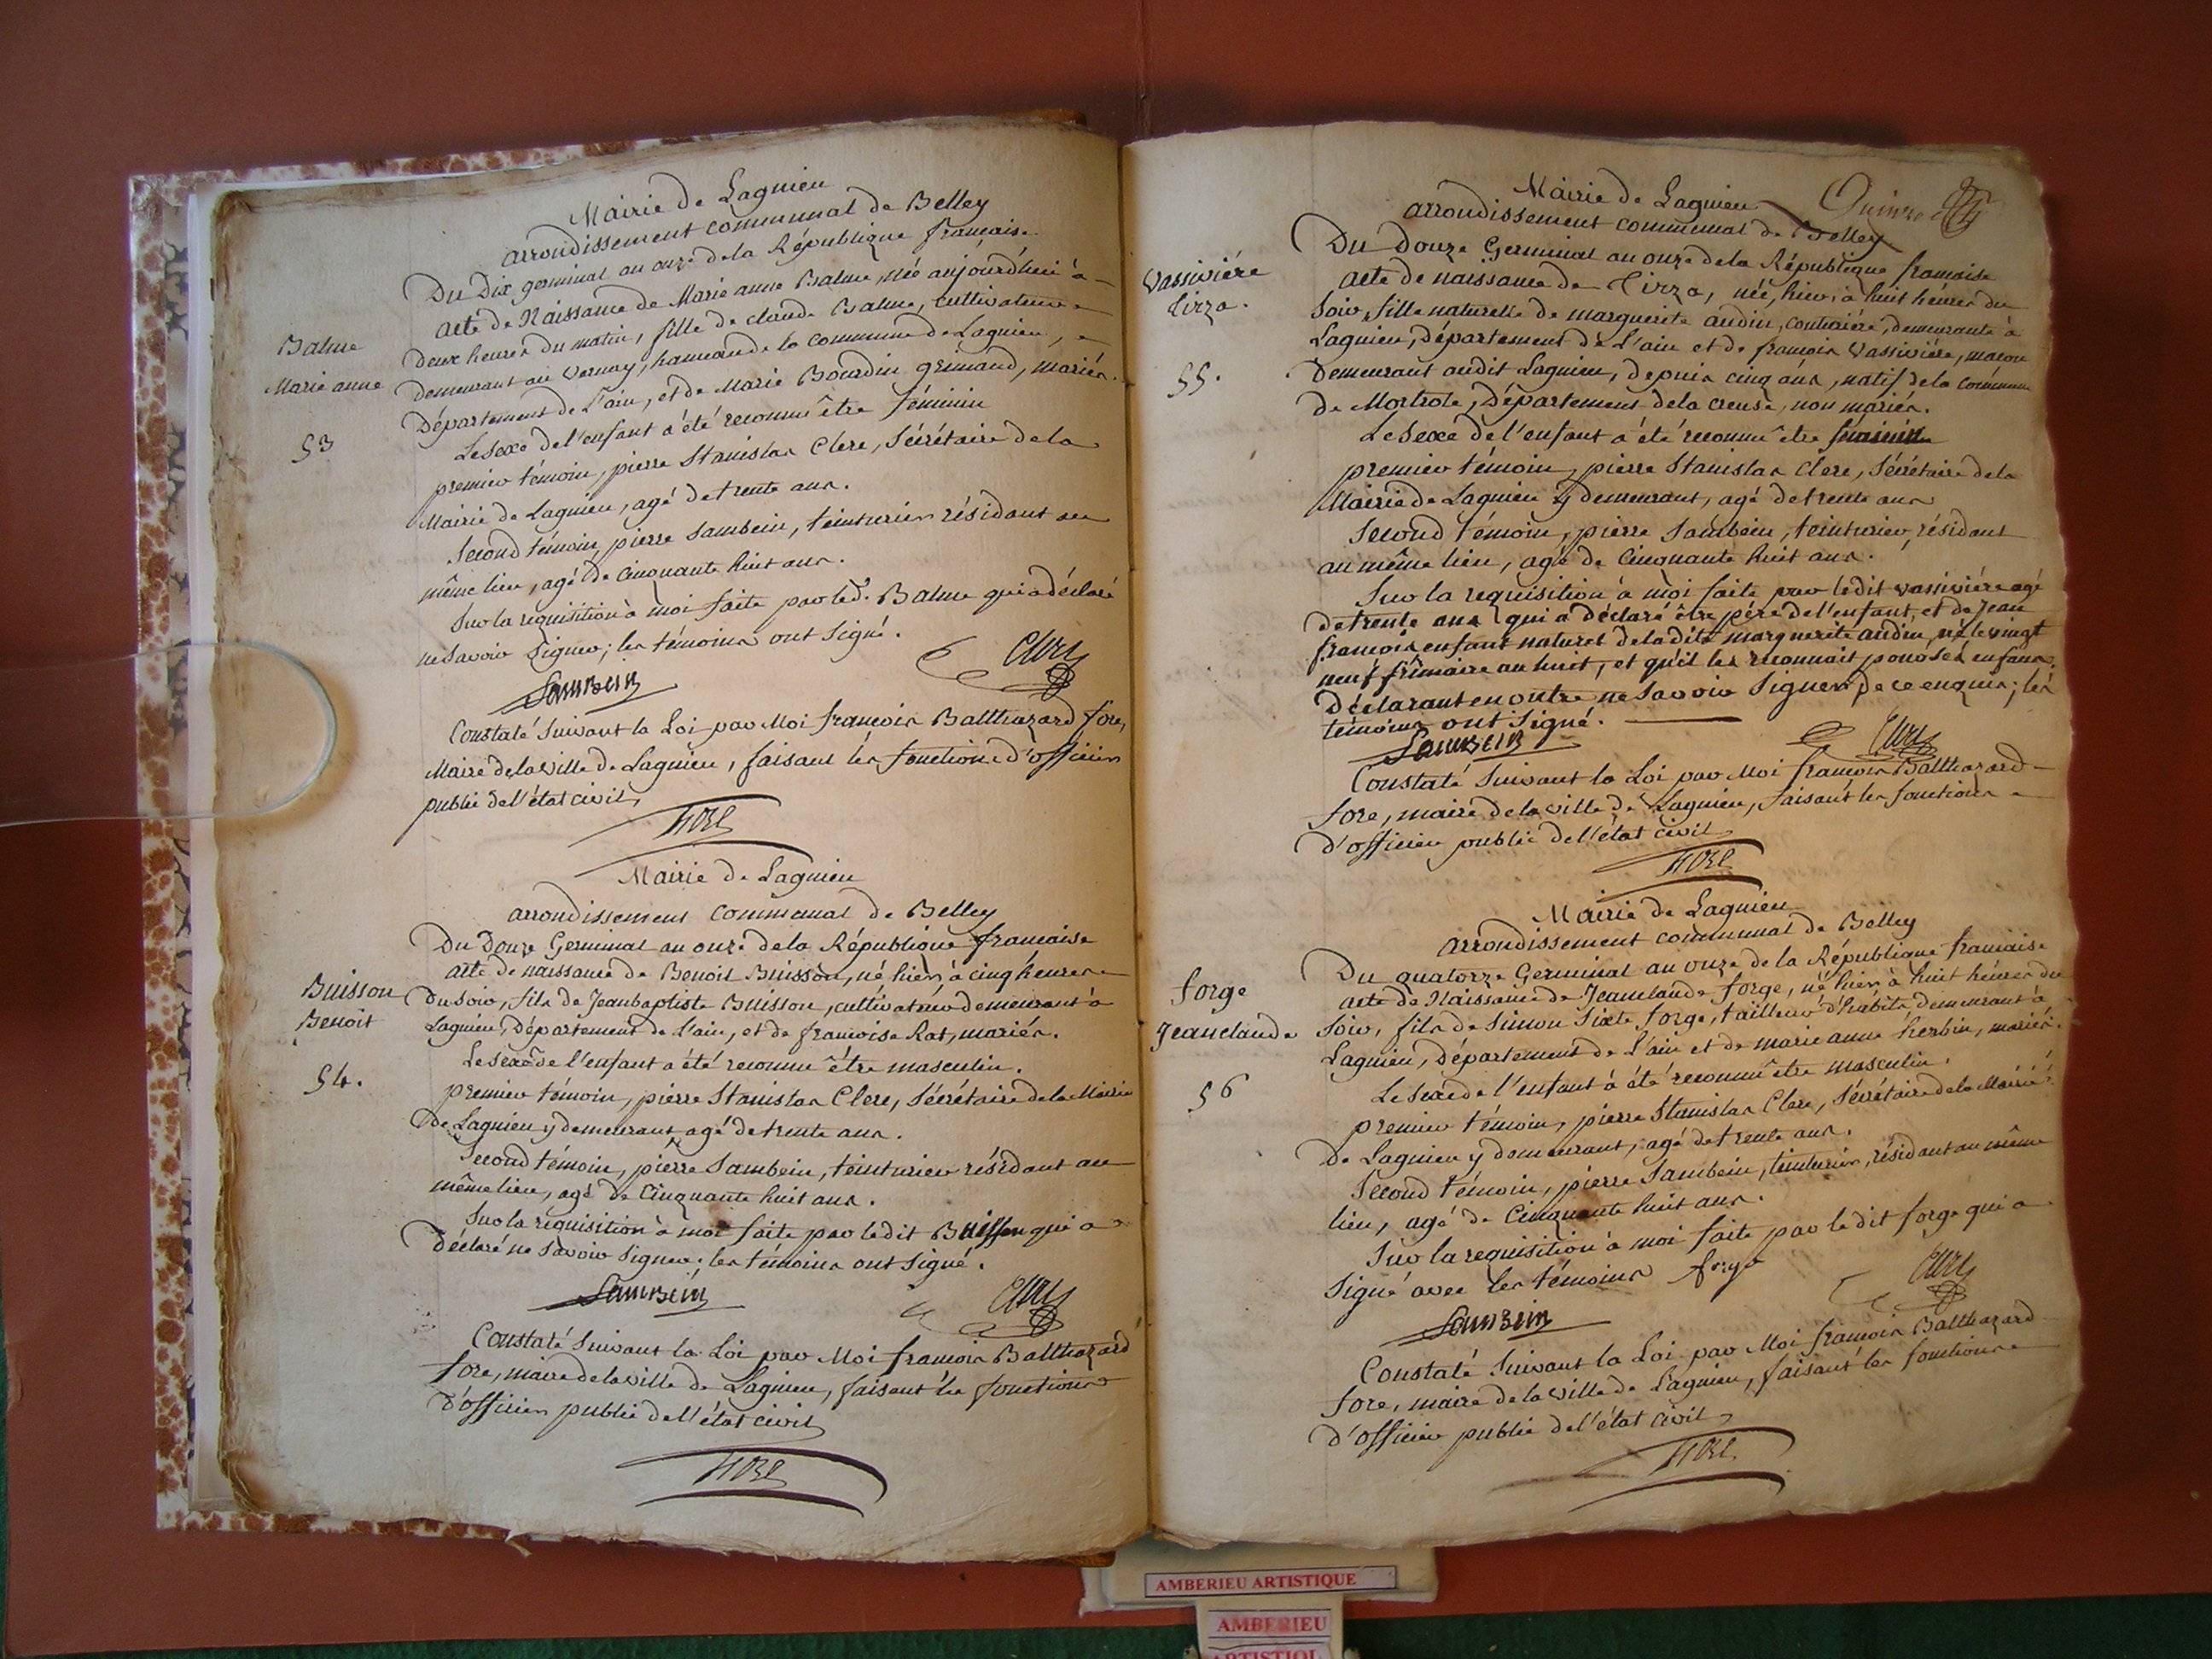 Mairie de Lagnieu
arrondissement communal de Belley
Du Dix germinal an onze de la République française
acte de Naissance de Marie anne Balme, née aujourdhui à
Balme
Marie anne
53
deux heures du matin, fille de claude Balme, cultivateur
demeurant au Vernay, hameau de la commune de Lagnieu,
Département de l'ain, et de Marie Bourdin grimaud, mariés.
Le Sexe de l'enfant a été reconnu être féminin
premier témoin, pierre Stanislas Clerc, Sécrétaire de la
Mairie de Lagnieu, agé de trente ans.
Second témoin, pierre Sambein, teinturier résidant au
même lieu, agé de Cinquante huit ans.
Sur la requisition à moi faite par led. Balme qui a déclaré
ne Savoir Signer; les témoins ont Signé.
Sambein Clerc
Constaté Suivant la Loi par Moi françois Balthazard fore,
Maire de la ville de Lagnieu, faisant les fonctions d'officier
public de l'état civil
fore
Mairie de Lagnieu
arrondissement communal de Belley
Du Douze Germinal an onze de la République francaise
acte de naissance de Benoit Buisson, né hier, à cinq heures
Buisson
Benoit
54.
Du Soir, fils de Jeanbaptiste Buisson, cultivateur demeurant à
Lagnieu, Département de l'ain, et de francoise Rat, mariés.
Le Sexe de l'enfant a été reconnu être masculin.
premier témoin, pierre Stanislas Clerc, Sécrétaire de la Mairie
De Lagnieu y demeurant, agé de trente ans.
Second témoin, pierre Sambein, teinturier résidant au
même lieu, agé de Cinquante huit ans.
Sur la requisition à moi faite par ledit Buisson qui a
déclaré ne Savoir Signer; les témoins ont Signé.
Sambein Clerc
Constaté Suivant la Loi par Moi francois Balthazard
fore, maire de la ville de Lagnieu, faisant les fonctions
d'officier public de l'état civil
fore
Mairie de Lagnieu
arrondissement communal de Belley
Du Douze Germinal an onze de la République francaise
acte de naissance de Tirza, née, hier, à huit heures du
Vassivière
Tirza.
55.
Soir, fille naturelle de marguerite audin, couturière, demeurante à
Lagnieu, Département de L'ain et de francois Vassivière, macon
Demeurant audit Lagnieu, depuis cinq ans, natif de la commune
de Mortrole, Département de la creuse, non mariés.
Le Sexe de l'enfant a été reconnu être féminin
premier témoin, pierre Stanislas Clerc, Sécrétaire de la
Mairie de Lagnieu y demeurant, agé de trente ans
Second témoin, pierre Sambein, teinturier, résidant
au même lieu, agé de Cinquante huit ans.
Sur la requisition à moi faite par ledit vassivière agé
de trente ans qui a déclaré être père de l'enfant, et de Jean
francois enfant naturel de ladite marguerite audin, né le vingt
neuf frimaire an huit, et qu'il les reconnait pour ses enfans.
Déclarant en outre ne Savoir Signer de ce enquis; les
témoins ont Signé.
Sambein Clerc
Constaté Suivant la Loi par Moi francois Balthazard
fore, maire de la ville de Lagnieu, faisant les fonctions
d'officier public de l'état civil
fore
Mairie de Lagnieu
arrondissement communal de Belley
Du quatorze Germinal an onze de la République francaise
acte de Naissance de Jeanclaude forge, né hier à huit heures du
forge
Jeanclaude
56
Soir, fils de Simon Sixte forge, tailleur d'habits demeurant à
Lagnieu, Département de l'ain et de marie anne herbin, mariés.
Le Sexe de l'enfant a été reconnu être masculin.
premier témoin, pierre Stanislas Clerc, Sécrétaire de la Mairie
de Lagnieu y demeurant, agé de trente ans.
Second témoin, pierre Sambein, teinturier, résidant au même
lieu, agé de Cinquante huit ans.
Sur la requisition à moi faite par ledit forge qui a
Signé avec les témoins forge
Sambein Clerc
Constaté Suivant la Loi par Moi francois Balthazard
fore, maire de la ville de Lagnieu, faisant les fonctions
d'officier public de l'état civil
fore
AMBERIEU ARTISTIQUE
AMBERIEU
ARTISTIQU